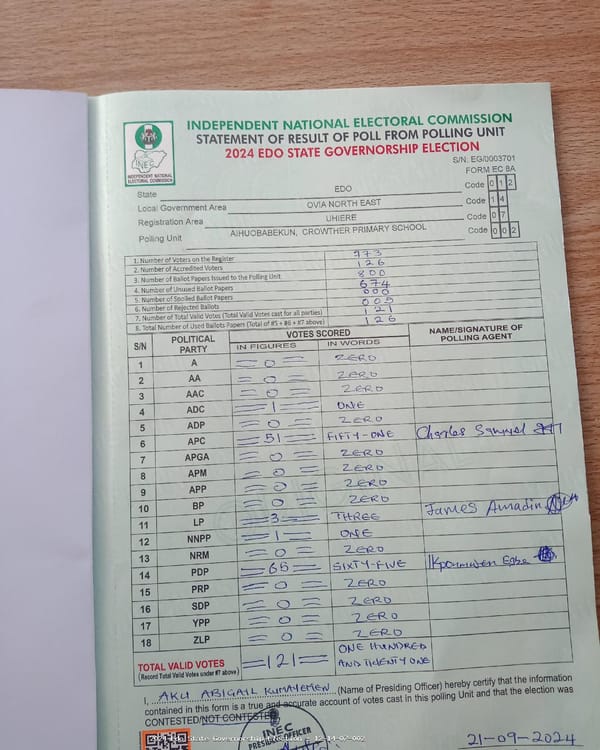 INDEPENDENT NATIONAL ELECTORAL COMMISSION
STATEMENT OF RESULT OF POLL FROM POLLING UNIT
2024 EDO STATE GOVERNORSHIP ELECTION
INEC
INDEPENDENT NATIONAL ELECTORAL COMMISSION
S/N: EG/0003701
FORM EC 8A
State EDO Code 0 1 2
Local Government Area OVIA NORTH EAST Code 1 4
Registration Area UHIERE Code 0 7
Polling Unit AIHUOBABEKUN, CROWTHER PRIMARY SCHOOL Code 0 0 2
1. Number of Voters on the Register 973
2. Number of Accredited Voters 126
3. Number of Ballot Papers Issued to the Polling Unit 800
4. Number of Unused Ballot Papers 674
5. Number of Spoiled Ballot Papers 000
6. Number of Rejected Ballots 005
7. Number of Total Valid Votes (Total Valid Votes cast for all parties) 121
8. Total Number of Used Ballots Papers (Total of #5 + #6 + #7 above) 126
S/N POLITICAL PARTY VOTES SCORED NAME/SIGNATURE OF POLLING AGENT
IN FIGURES IN WORDS
1 A =0= ZERO
2 AA =0= ZERO
3 AAC =0= ZERO
4 ADC =1= ONE
5 ADP =0= ZERO
6 APC =51= FIFTY-ONE Charles Samuel
7 APGA =0= ZERO
8 APM =0= ZERO
9 APP =0= ZERO
10 BP =0= ZERO
11 LP =3= THREE James Amadin
12 NNPP =1= ONE
13 NRM =0= ZERO
14 PDP =65= SIXTY-FIVE
15 PRP =0= ZERO
16 SDP =0= ZERO
17 YPP =0= ZERO
18 ZLP =0= ZERO
TOTAL VALID VOTES =121= ONE HUNDRED AND TWENTY ONE
(Record Total Valid Votes under #7 above)
I, AKU ABIGAIL (Name of Presiding Officer) hereby certify that the information
contained in this form is a true and accurate account of votes cast in this polling Unit and that the election was
CONTESTED/NOT CONTESTED
INEC
PRESIDING OFFICER
21-09-2024